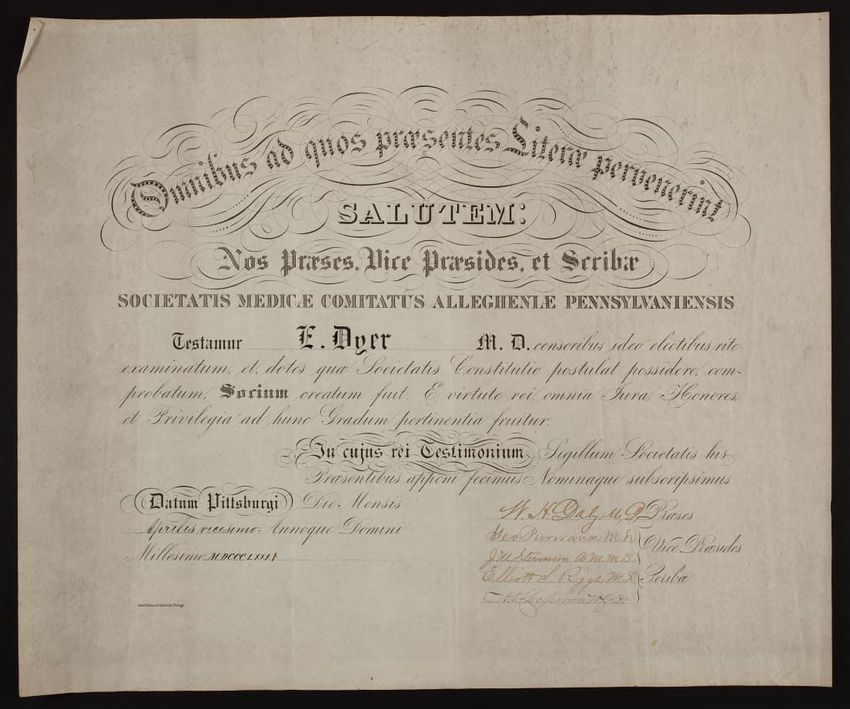 Omnibus ad quos præsentes Literæ pervenerint
SALUTEM:
Nos Præses, Vice Præsides, et Scribæ
SOCIETATIS MEDICÆ COMITATŪS ALLEGHENIÆ PENNSYLVANIENSIS
Testamur E. Dyer M. D. censoribus ideo electibus rite
examinatum, et, dotes quæ Societatis Constitutio postulat possidere, com-
probatum, Socium creatum fuit. E virtute rei, omnia Jura, Honores,
et Privilegia ad hunc Gradum pertinentia fruitur.
In cujus rei Testimonium Sigillum Societatis his
Præsentibus apponi fecimus Nominaque subscripsimus
Datum Pittsburgi Die Mensis
Aprilis, vicesimo Annoque Domini
Millesimo MDCCCLXXX
W. H. Daly M.D. Præses
Geo M.D.
J M Stevenson A.M. M.D. Vice Præsides
Elliott S. Riggs M.D. Scribæ